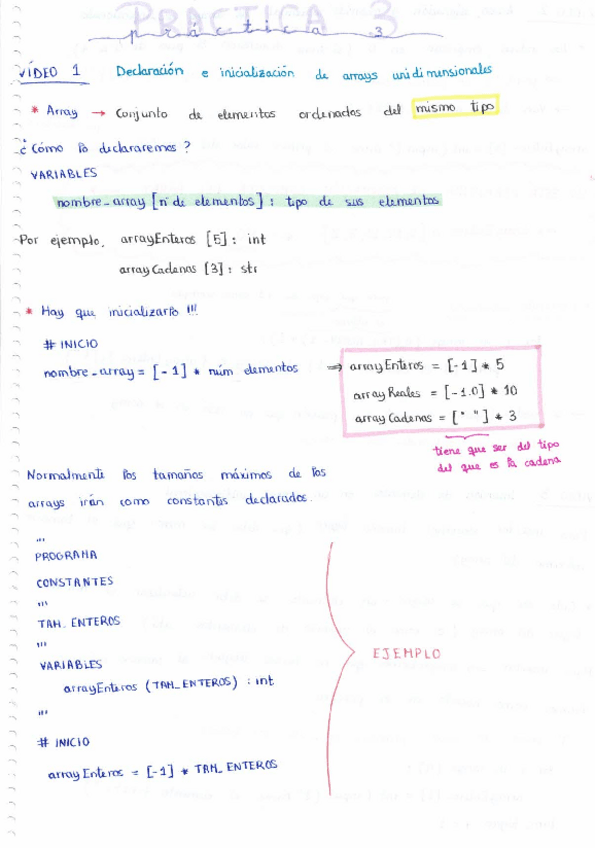 PRACTICA 3
práctica 3
VÍDEO 1 Declaración e inicialización de arrays unidimensionales
* Array → Conjunto de elementos ordenados del mismo tipo
¿Cómo lo declararemos?
VARIABLES
nombre-array [nº de elementos] : tipo de sus elementos
Por ejemplo, arrayEnteros [5] : int
arrayCadenas [3] : str
* Hay que inicializarlo !!!
# INICIO
nombre-array = [-1] * núm elementos ⇒ arrayEnteros = [-1] * 5
arrayReales = [-1.0] * 10
arrayCadenas = [" "] * 3
tiene que ser del tipo
del que es la cadena
Normalmente los tamaños máximos de los
arrays irán como constantes declarados.
'''
PROGRAMA
CONSTANTES
'''
TAM_ENTEROS
'''
VARIABLES
arrayEnteros (TAM_ENTEROS) : int
'''
# INICIO
arrayEnteros = [-1] * TAM_ENTEROS
EJEMPLO